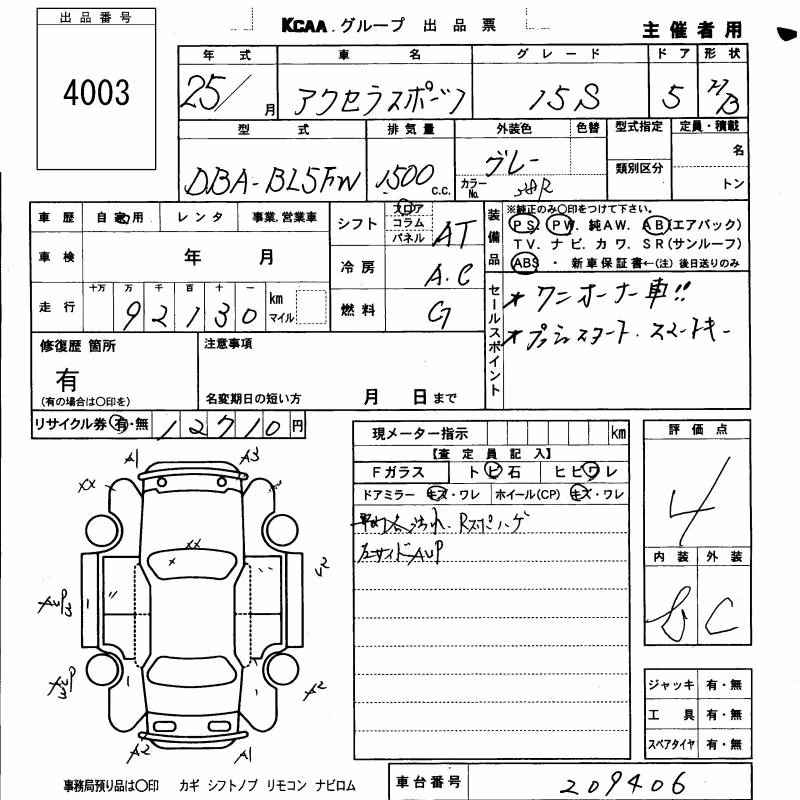 出品番号
4003
KCAA.グループ 出品票
主催者用
年式 車名 グレード ドア 形状
25/ 月 アクセラスポーツ 15S 5 H/B
型式 排気量 外装色 色替 型式指定 定員・積載
DBA-BL5FW 1500 c.c. グレー
カラーNo. 38R
類別区分
名
トン
車歴 自家用 レンタ 事業.営業車
シフト フロア コラム パネル AT
車検 年 月
冷房 A.C
走行 十万 万 千 百 十 一
92130 km マイル
燃料 G
装備品
※純正のみ〇印をつけて下さい。
PS. PW. 純AW. AB(エアバック)
TV. ナビ. カワ. SR(サンルーフ)
ABS ・ 新車保証書←(注) 後日送りのみ
セールスポイント
★ワンオーナー車!!
★プッシュスタート.スマートキー
修復歴 箇所
有
(有の場合は〇印を)
注意事項
名変期日の短い方 月 日まで
リサイクル券 有・無 12710円
現メーター指示 km
【査定員記入】
Fガラス トビ石 ヒビワレ
ドアミラー キズ・ワレ ホイール(CP) キズ・ワレ
Rスポハゲ
左サイドAUP
評価点
4
内装 外装
B C
A1 A3
XX
XX
X
A2
A2 A1
ジャッキ 有・無
工具 有・無
スペアタイヤ 有・無
事務局預り品は〇印 カギ シフトノブ リモコン ナビロム
車台番号 209406